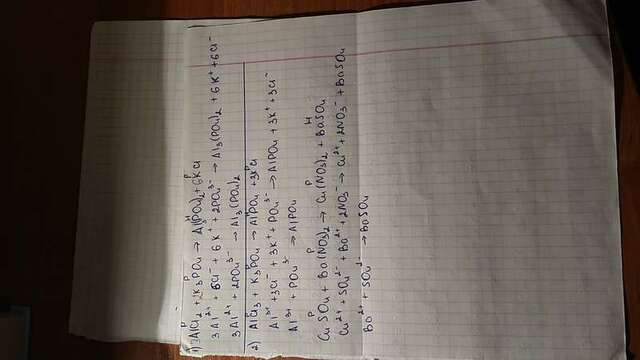 1) AlCl₂ + K₃PO₄ → Al₃(PO₄)₂ + 6KCl
3Al²⁺ + 6Cl⁻ + 6K⁺ + 2PO₄³⁻ → Al₃(PO₄)₂ + 6K⁺ + 6Cl⁻
3Al²⁺ + 2PO₄³⁻ → Al₃(PO₄)₂
2) AlCl₃ + K₃PO₄ → AlPO₄ + 3KCl
Al³⁺ + 3Cl⁻ + 3K⁺ + PO₄³⁻ → AlPO₄ + 3K⁺ + 3Cl⁻
Al³⁺ + PO₄³⁻ → AlPO₄
CuSO₄ + Ba(NO₃)₂ → Cu(NO₃)₂ + BaSO₄
Cu²⁺ + SO₄²⁻ + Ba²⁺ + 2NO₃⁻ → Cu²⁺ + 2NO₃⁻ + BaSO₄
Ba²⁺ + SO₄²⁻ → BaSO₄